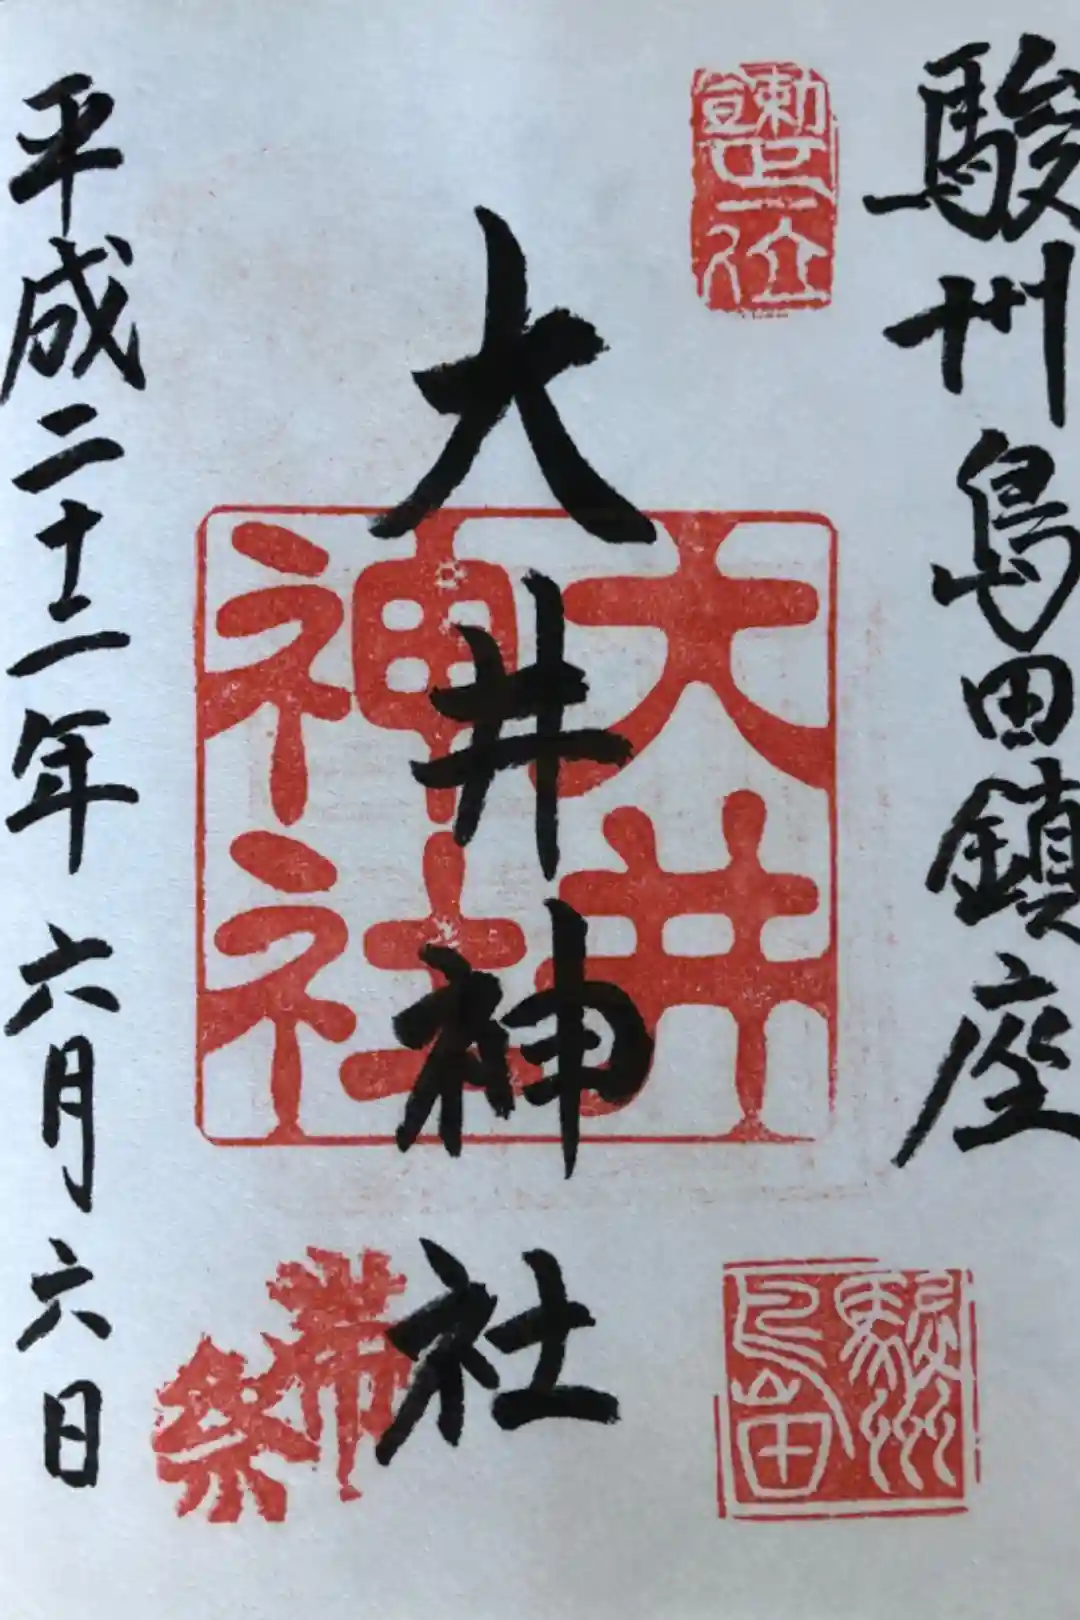 駿州島田鎮座
勅宣正一位
駿州
島田
大井神社
大井
神社
帯
祭
平成二十二年六月六日